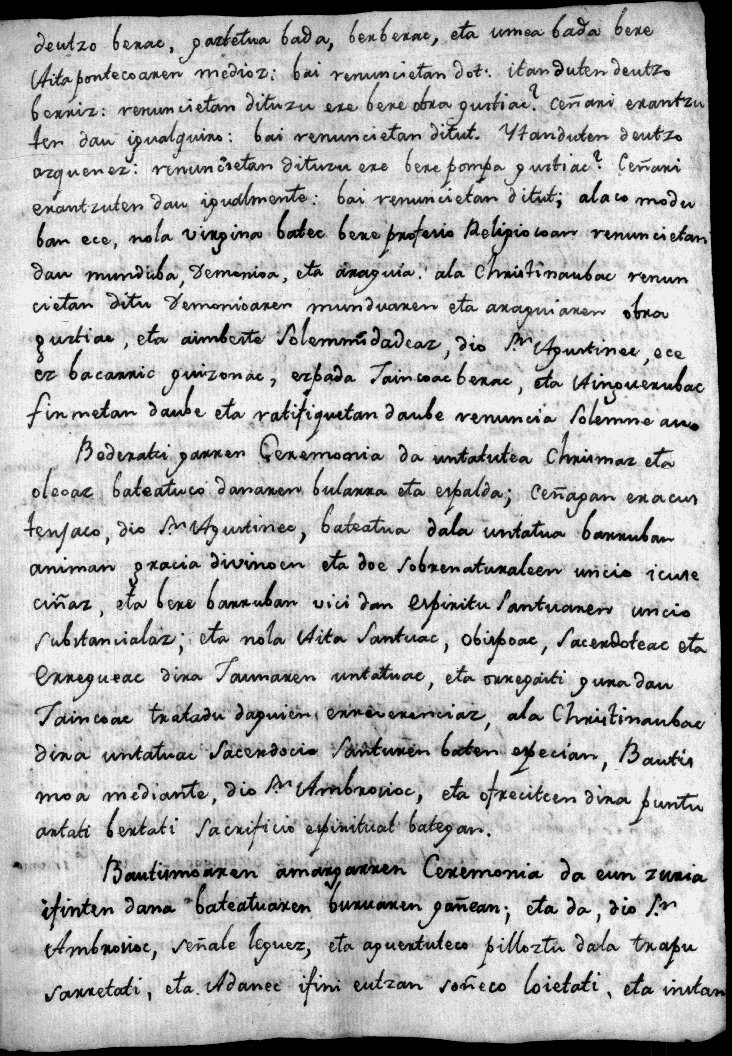 deutzo berac, gaztetua bada, berberac, eta umea bada bere
Aita pontecoaren medioz: bai renuncietan dot: itanduten deutzo
berriz: renuncietan dituzu ere bere obra gustiac? Ceñari erantzu
ten dau igualguiro: bai renuncietan ditut. Ytanduten deutzo
azquenez: renuncietan dituzu ere bere pompa gustiac? Ceñari
erantzuten dau igualmente: bai renuncietan ditut; alaco modu
ban ece, nola virgina batec bere profesio Religiosoan renuncietan
dau munduba, Demonioa, eta araguia: ala Christinaubac renun
cietan ditu Demonioaren munduaren eta araguiaren obra
gustiac, eta aimbeste Solemnidadeaz, dio Sn Agustinec, ece
ez bacarric guizonac, ezpada Taincoac berac, eta Ainguerubac
finmetan daube eta ratifiquetan daube renuncia Solemne au
Bederatzi garren Ceremonia da untatutea Chrismaz eta
oleoaz bateatuco danaren bularra eta espalda; ceñagan eracus
tensaco, dio Sn Agustinec, bateatua dala untatua barruban
animan gracia divinoen eta doe sobrenaturaleen uncio icuse
ciñaz, eta bere barruban vici dan Espiritu Santuaren uncio
substancialaz; eta nola Aita Santuac, obispoac, sacerdoteac eta
Erregueac dira Jaunaren untatuac, eta orregaiti gura dau
Taincoac tratadu daguien erreverenciaz, ala Christinaubac
dira untatuac sacerdocio santuren baten especian, Bautis
moa mediante, dio Sn Ambrosioc, eta ofrecitcen dira puntu
artati bertati sacrificio espiritual bategan.
Bautismoaren amargarren Ceremonia da eun zuria
ifinten dana bateatuaren buruaren gañean; eta da, dio Sn
Ambrosioc, señale leguez, eta aguertuteco pilloztu dala trapu
sarretati, eta Adanec ifini eutzan soñeco loietati, eta instan